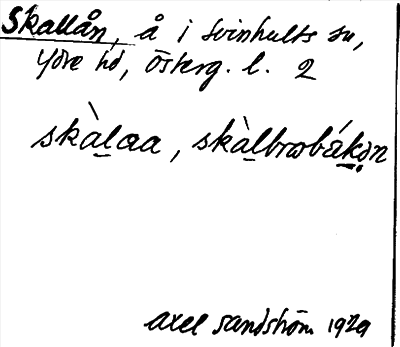 Skallån, å i Svinhults sn,
Ydre hd, Österg. l. 2
skàlaa, skàlbrobákən
Axel Sandström 1929